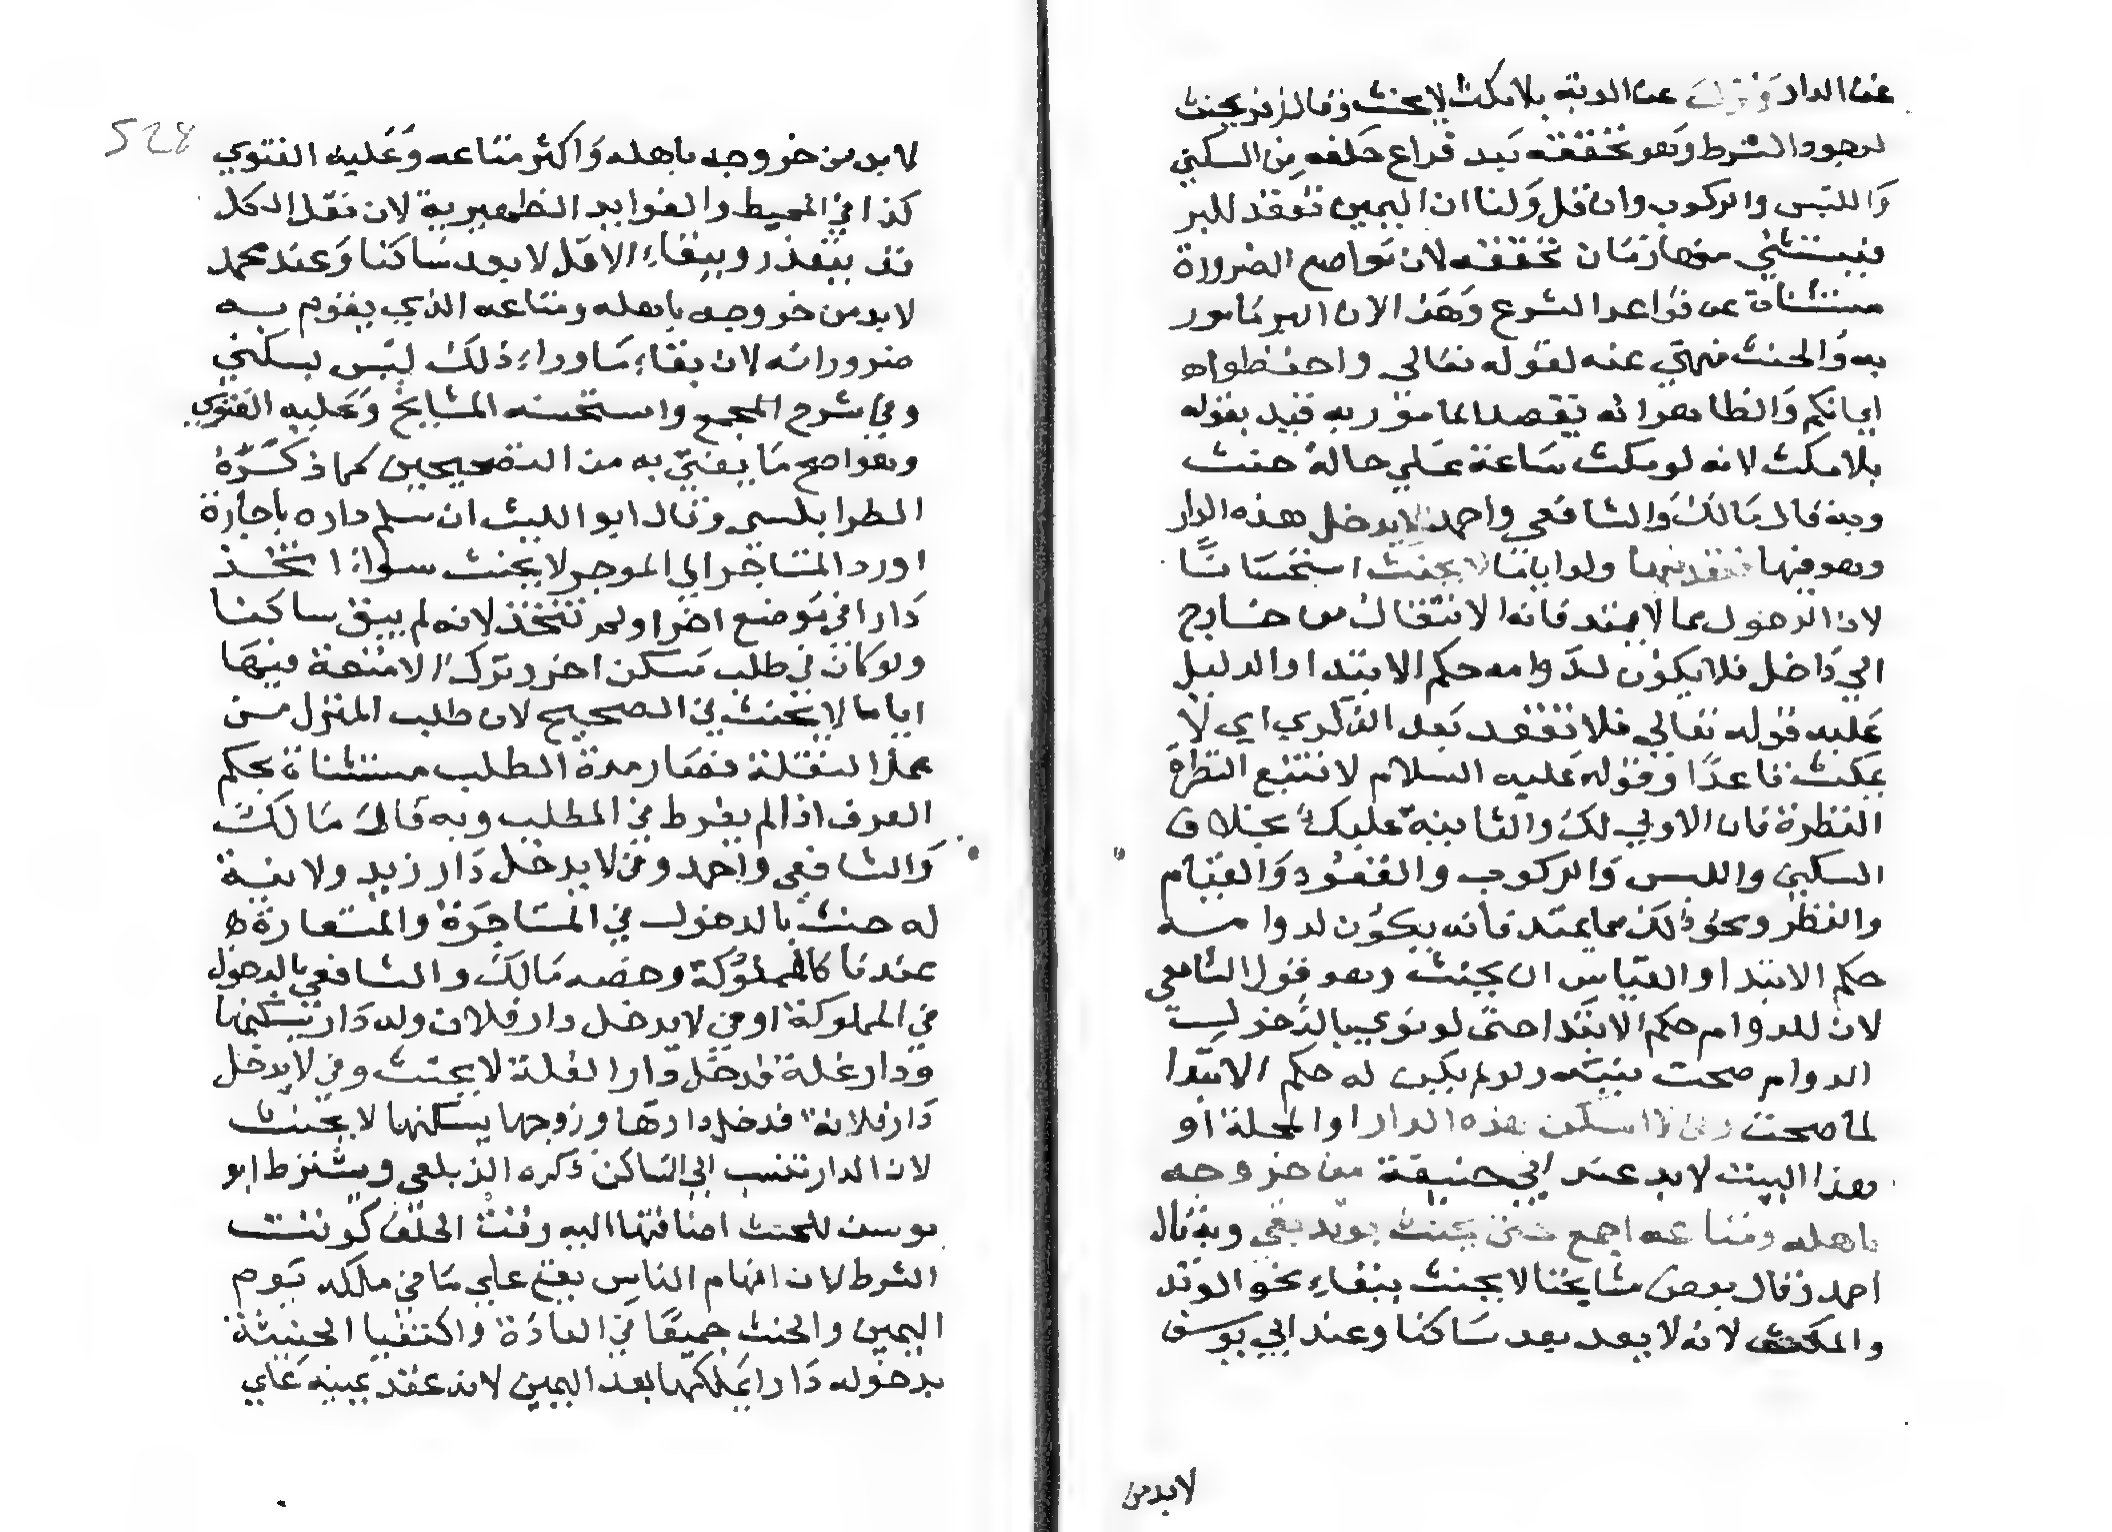 عن الدار ونزل عن الدابة بلا مكث لا يحنث وقال زفر يحنث
لوجود الشرط وهو تحققه بعد فراغ حلفه من السكني
واللبس والركوب وان قل ولنا ان اليمين تعقد للبر
فيستثني منها زمان تحققه لان مواضع الضرورة
مستثناة عن قواعد الشرع وهذا لان البر مامور
به والحنث منهي عنه لقوله تعالي واحفظوا
ايمانكم والظاهر انه يقصد المامور به قيد بقوله
بلا مكث لانه لو مكث ساعة علي حاله حنث
وبه قال مالك والشافعي واحمد لا يدخل هذه الدار
وهو فيها فقعد فيها ولو اياما لا يحنث استحسانا
لان الدخول مما لا يمتد فانه الانتقال من خارج
الي داخل فلا يكون لدوامه حكم الابتدا والدليل
عليه قوله تعالي فلا تقعد بعد الذكري اي لا
تمكث قاعدا وقوله عليه السلام لا تتبع النظرة
النظرة فان الاولي لك والثانية عليك بخلاف
السكني واللبس والركوب والقعود والقيام
والنظر ونحو ذلك مما يمتد فانه يكون لدوامه
حكم الابتدا والقياس ان يحنث وهو قول الشافعي
لان للدوام حكم الابتدا حتي لو نوي بالدخول
الدوام صحت نيته ولو لم يكن له حكم الابتدا
لما صحت وفي لا اسكن هذه الدار او المحلة او
هذا البيت لا بد عند ابي حنيفة من خروجه
باهله ومتاعه اجمع حتي يحنث بوتد بقي وبه قال
احمد وقال بعض مشايخنا لا يحنث ببقاء نحو الوتد
والمكنسة لانه لا يعد بعد ساكنا وعند ابي يوسف
لا بد من
528
لا بد من خروجه باهله واكثر متاعه وعليه الفتوي
كذا في المحيط والفوايد الظهيرية لان نقل الكل
قد يتعذر وببقاء الاقل لا يعد ساكنا وعند محمد
لا بد من خروجه باهله ومتاعه الذي يقوم به
ضروراته لان بقاء ما وراء ذلك ليس بسكني
وفي شرح المجمع واستحسنه المشايخ وعليه الفتوي
وهو اصح ما يفتي به من التصحيحين كما ذكره
الطرابلسي وقال ابو الليث ان سلم داره باجارة
او رد المستاجر الي الموجر لا يحنث سواء اتخذ
دارا في موضع اخر او لم تتخذ لانه لم يبق ساكنا
ولو كان في طلب مسكن اخر وترك الامتعة فيها
اياما لا يحنث في الصحيح لان طلب المنزل من
عمل النقلة فصار مدة الطلب مستثناة بحكم
العرف اذا لم يفرط في المطلب وبه قال مالك
والشافعي واحمد وفي لا يدخل دار زيد ولا نية
له حنث بالدخول في المستاجرة والمستعارة
عندنا كالمملوكة وخصه مالك والشافعي بالدخول
في المملوكة او في لا يدخل دار فلان وله دار يسكنها
ودار غلة فدخل دار الغلة لا يحنث وفي لا يدخل
دار فلانة فدخل دارها وزوجها يسكنها لا يحنث
لان الدار تنسب الي الساكن ذكره الزيلعي ويشترط ابو
يوسف للحنث اضافتها اليه وقت الحلف كوقت
الشرط لان افهام الناس يقع علي ما في ملكه يوم
اليمين والحنث جميعا في العادة واكتفيا الحنيثة
بدخوله دارا يملكها بعد اليمين لانه عقد يمينه علي